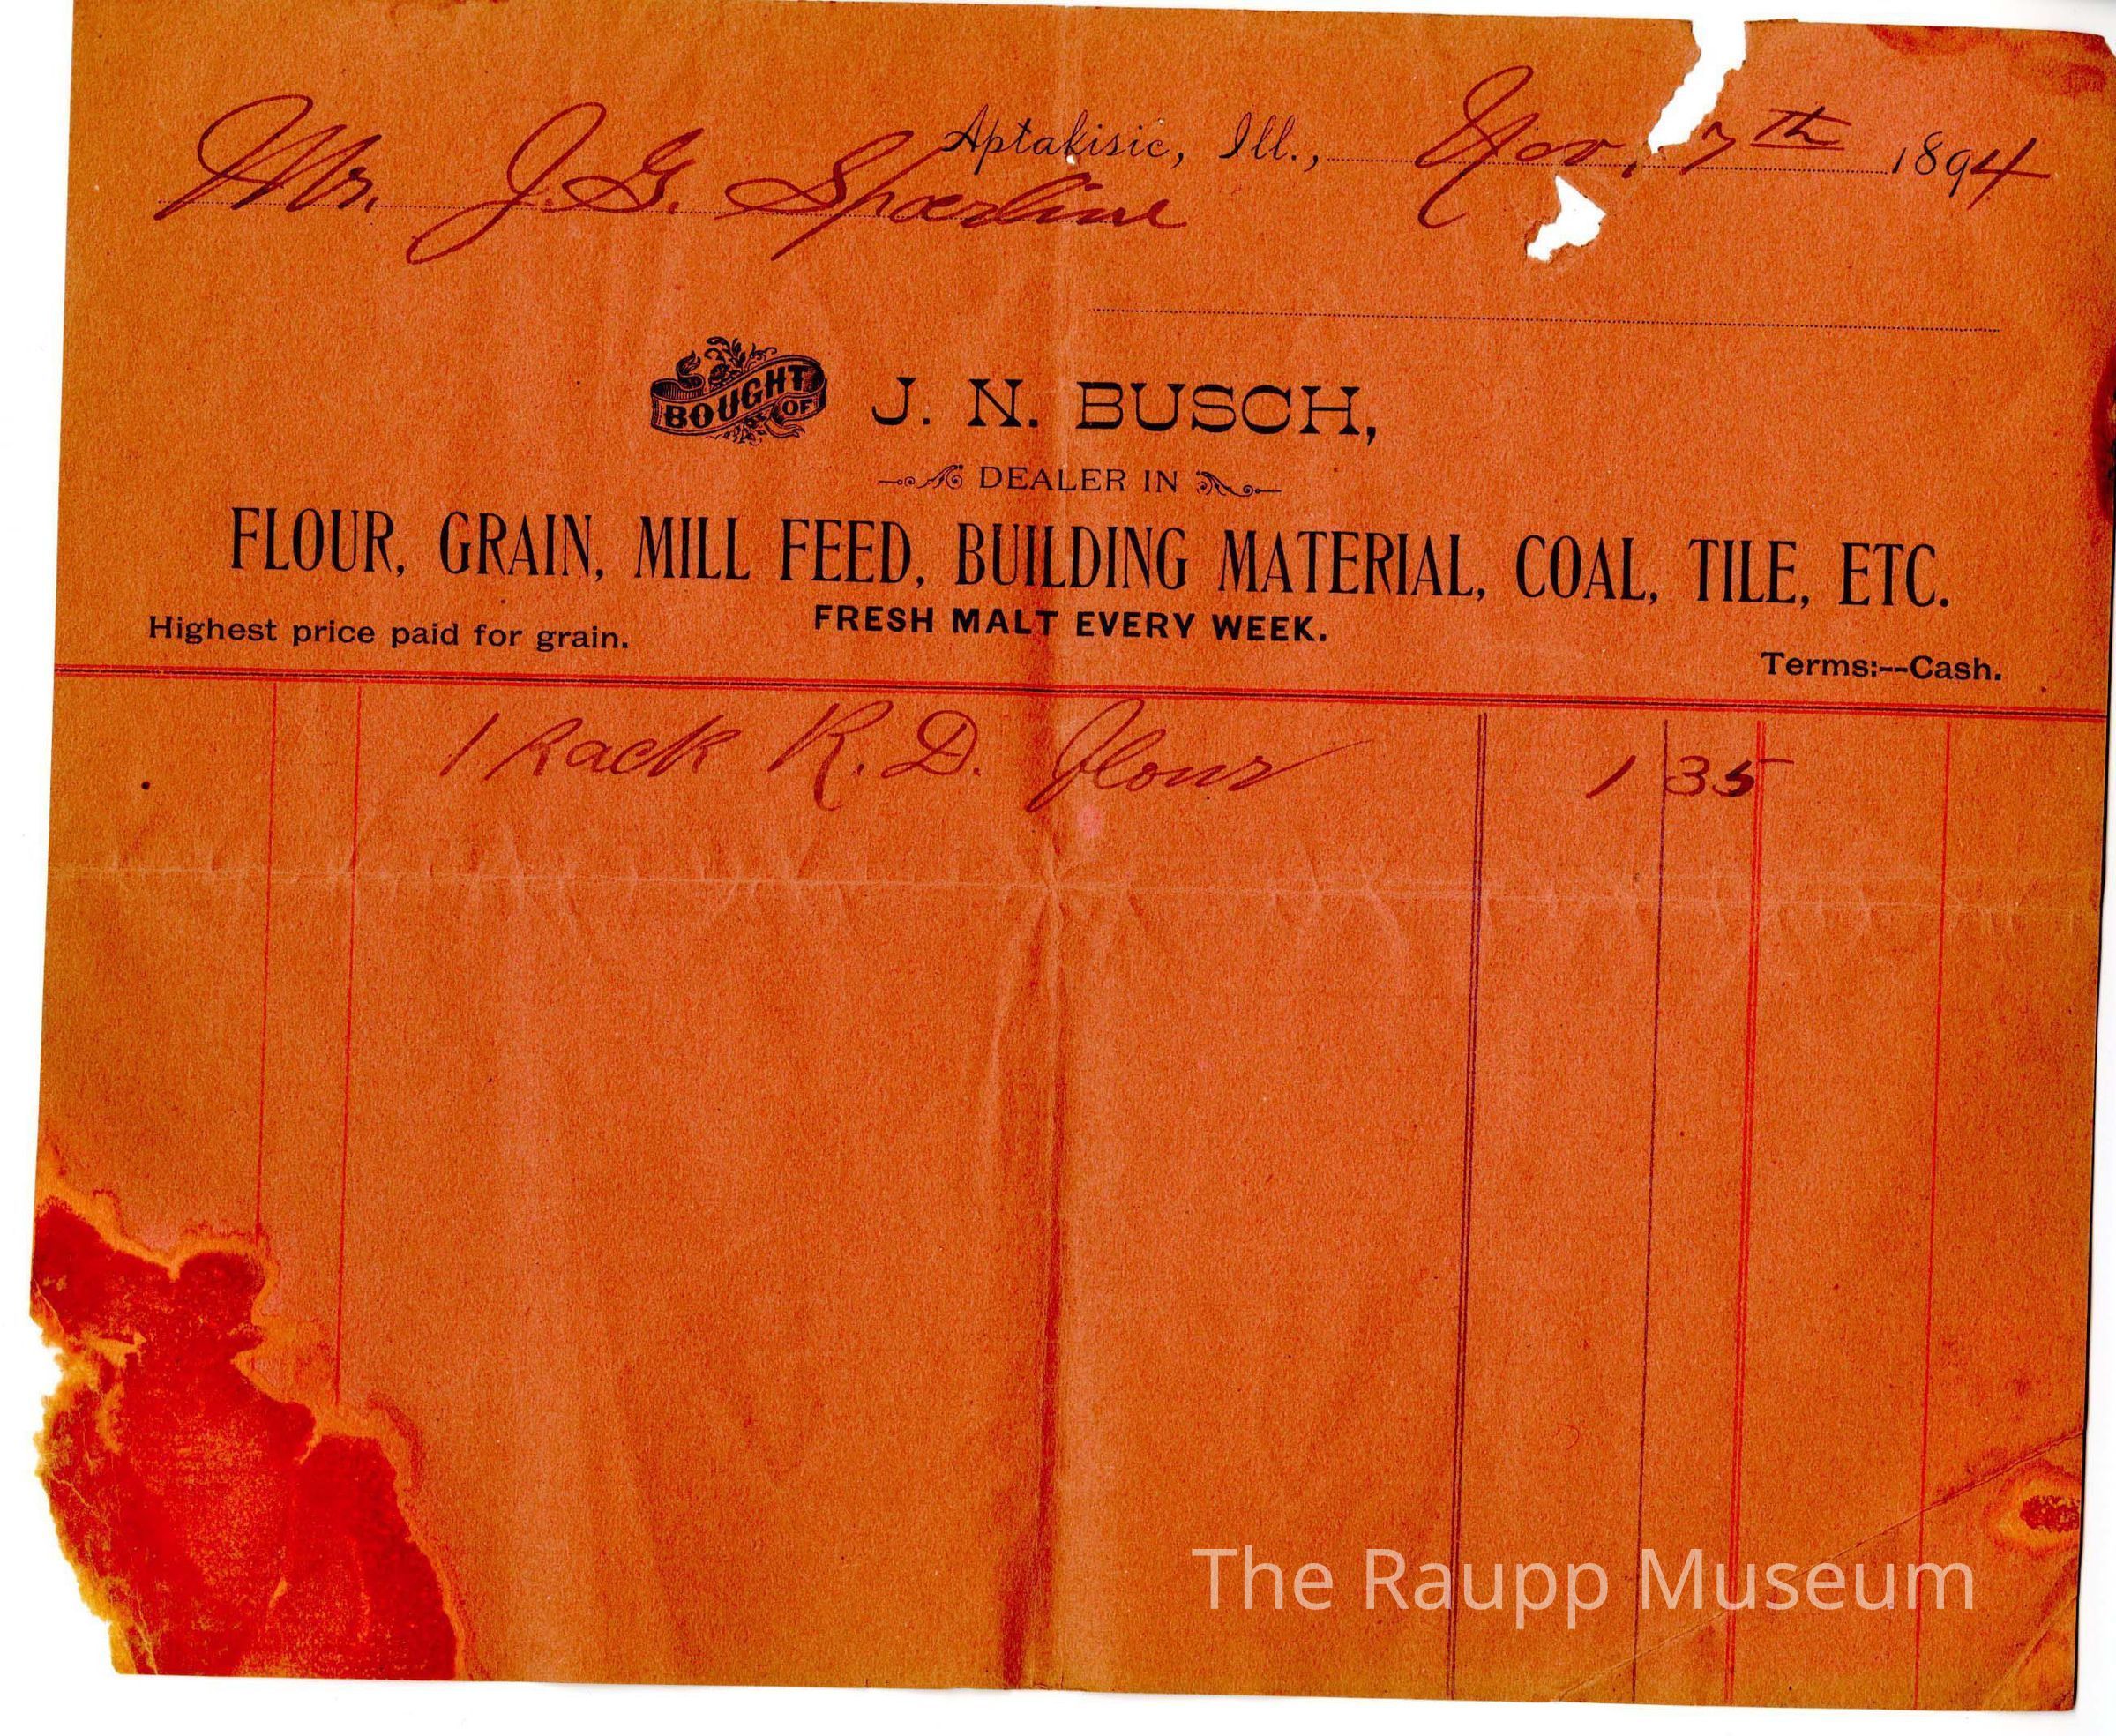 Aptakisic, Ill., Nov. 7th 1894
Mr. J. G. Spoerline
BOUGHT OF J. N. BUSCH,
DEALER IN
FLOUR, GRAIN, MILL FEED, BUILDING MATERIAL, COAL, TILE, ETC.
FRESH MALT EVERY WEEK.
Highest price paid for grain.
Terms:--Cash.
1 Sack R. D. Flour 1 35
The Raupp Museum